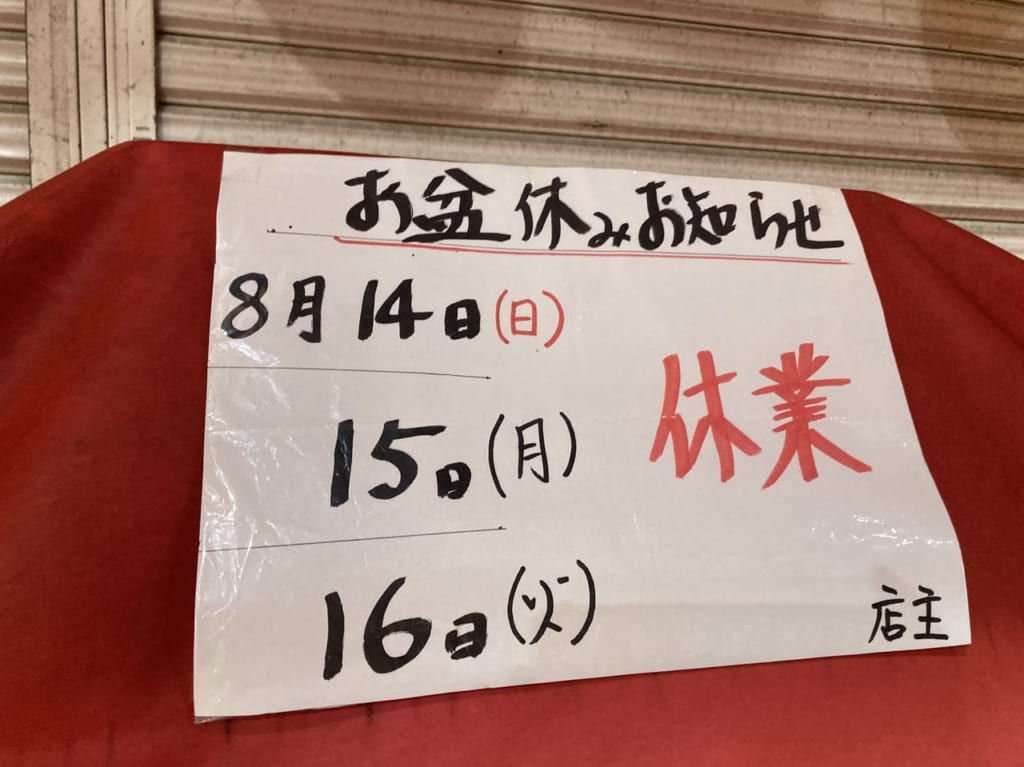 お盆休みお知らせ
8月14日(日)
15日(月)
休業
16日(火)
店主